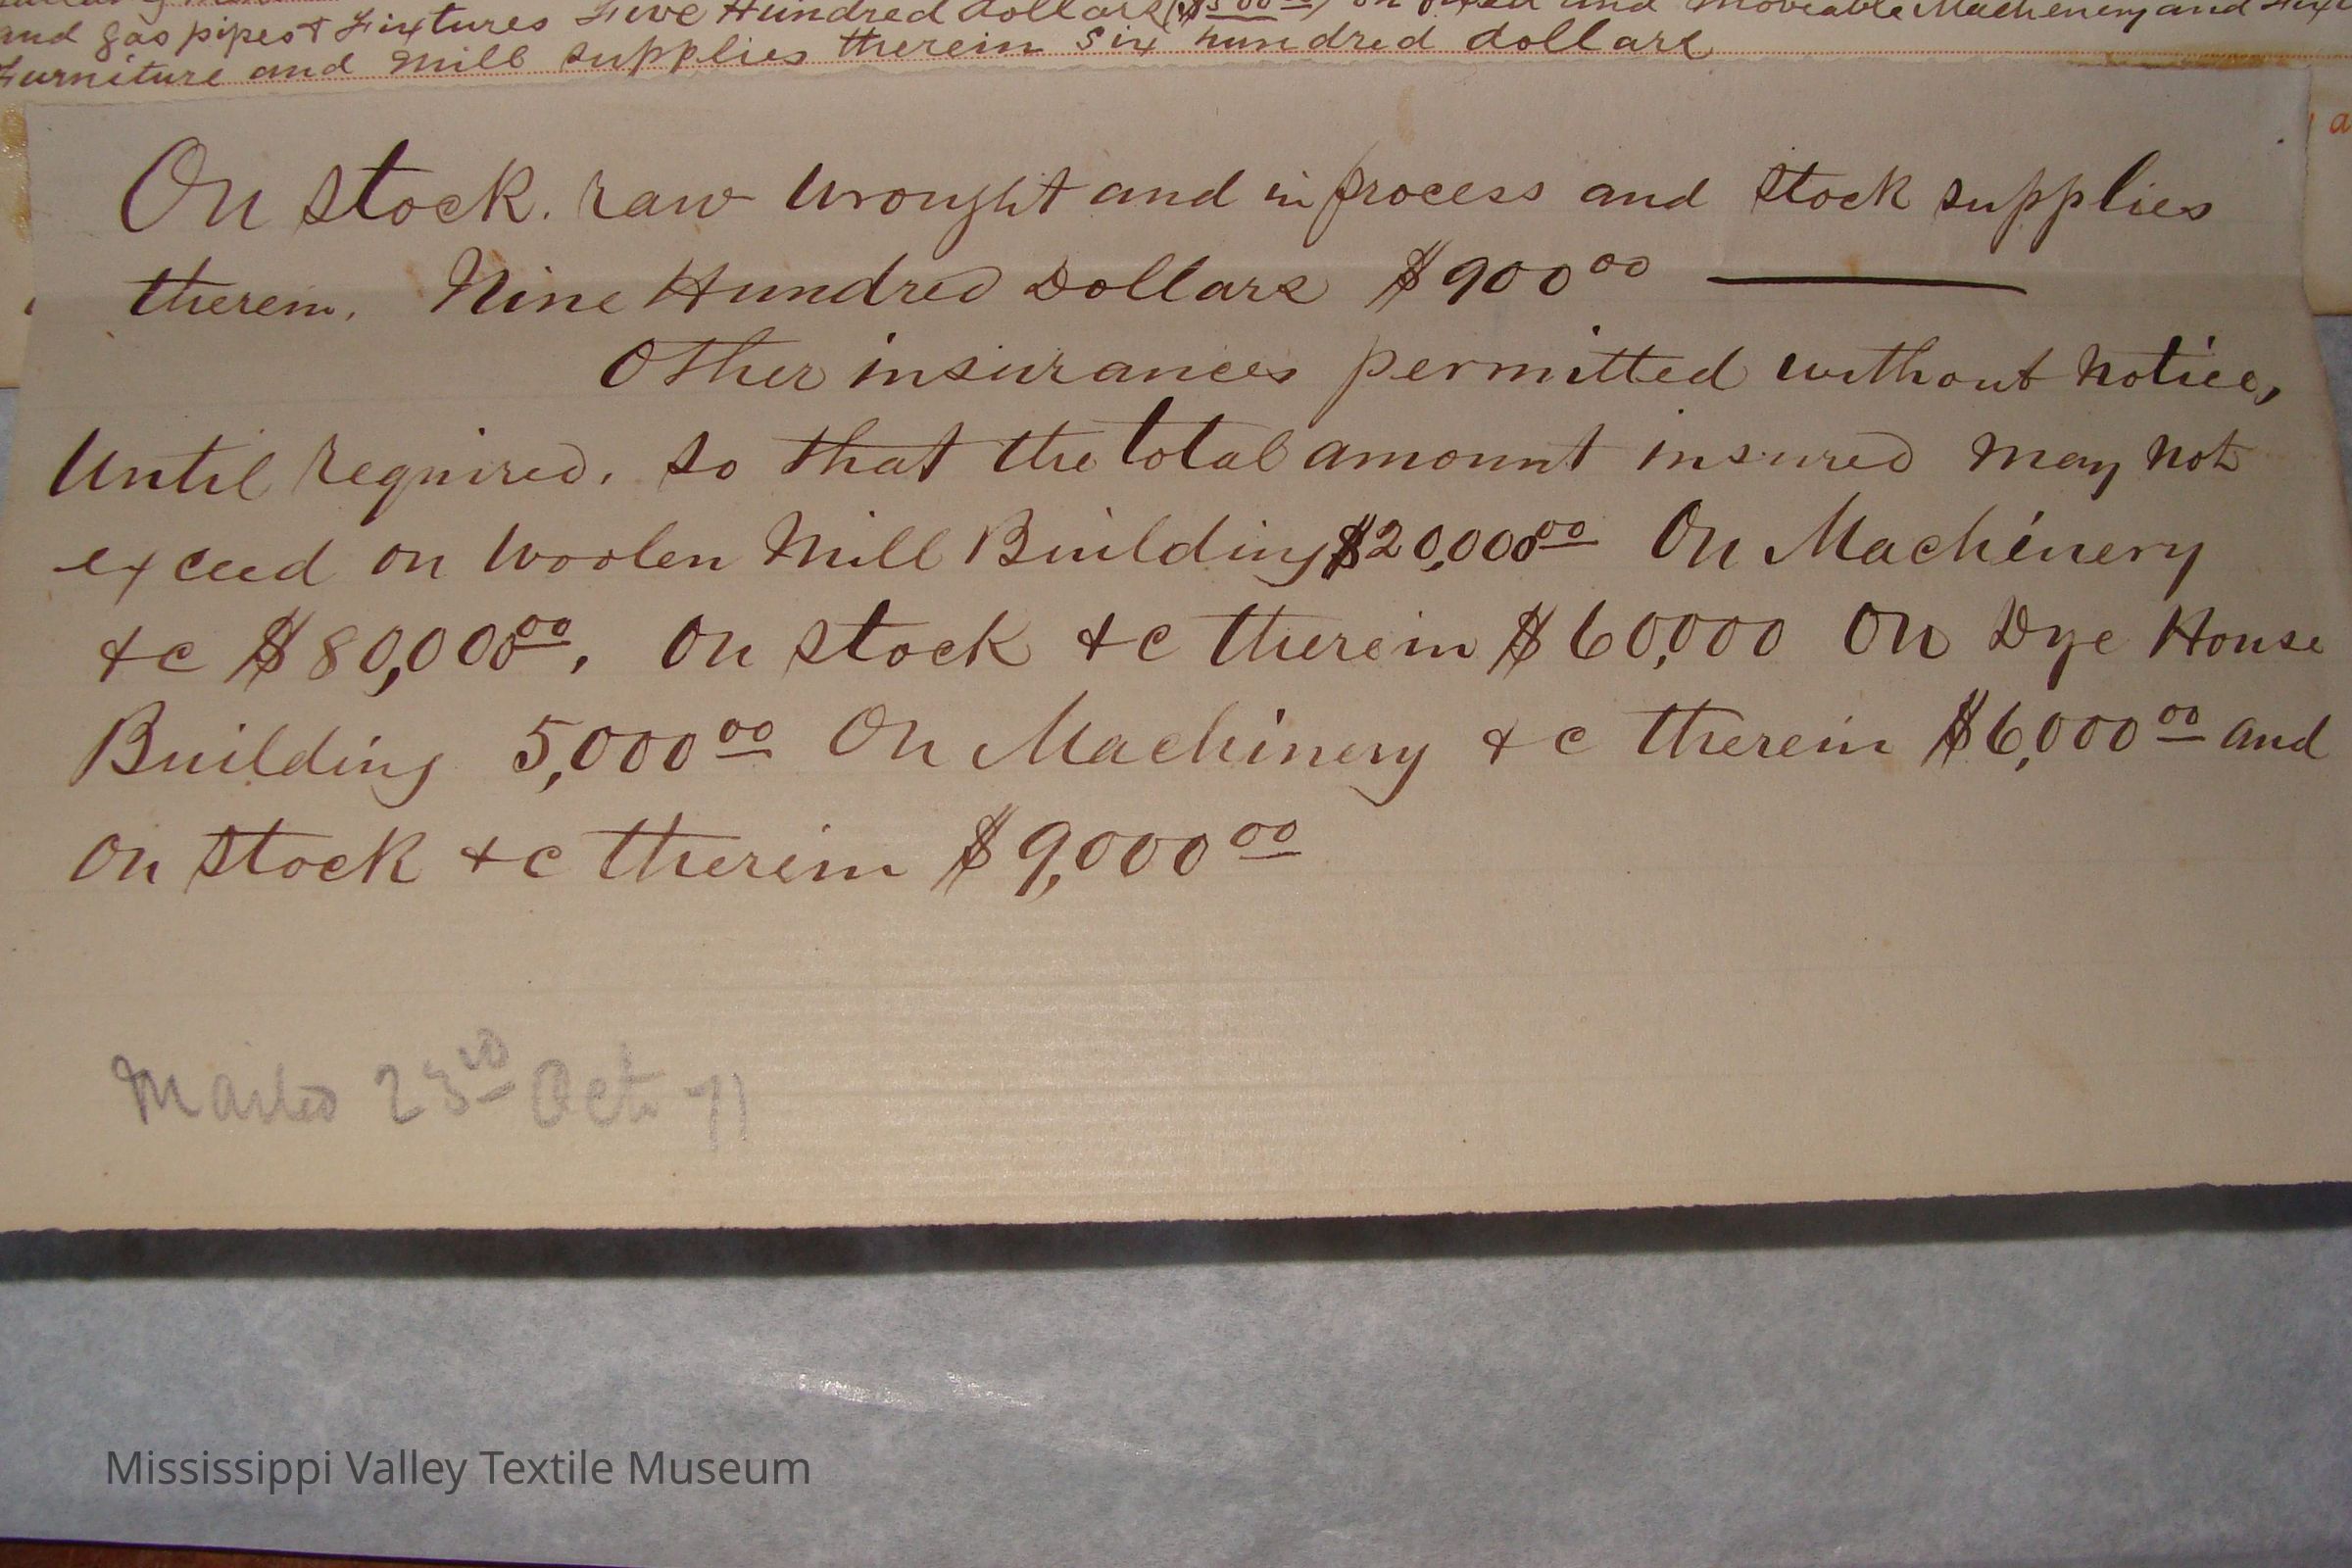 and gas pipes & Fixtures Five Hundred dollars ($500.00) on fixed and moveable Machenery and
Furniture and Mill supplies therein six hundred dollars
On Stock. raw wrought and in process and Stock supplies
therein. Nine Hundred Dollars $900 00
Other insurances permitted without notice,
Until required. so that the total amount insured may not
exceed on Woolen Mill Building $20,000 00 On Machinery
&c $80,000 00. On Stock &c therein $60,000 On Dye House
Building 5,000 00 On Machinery &c therein $6,000 00 and
On Stock &c therein $9,000 00
23rd Oct 71
Mississippi Valley Textile Museum